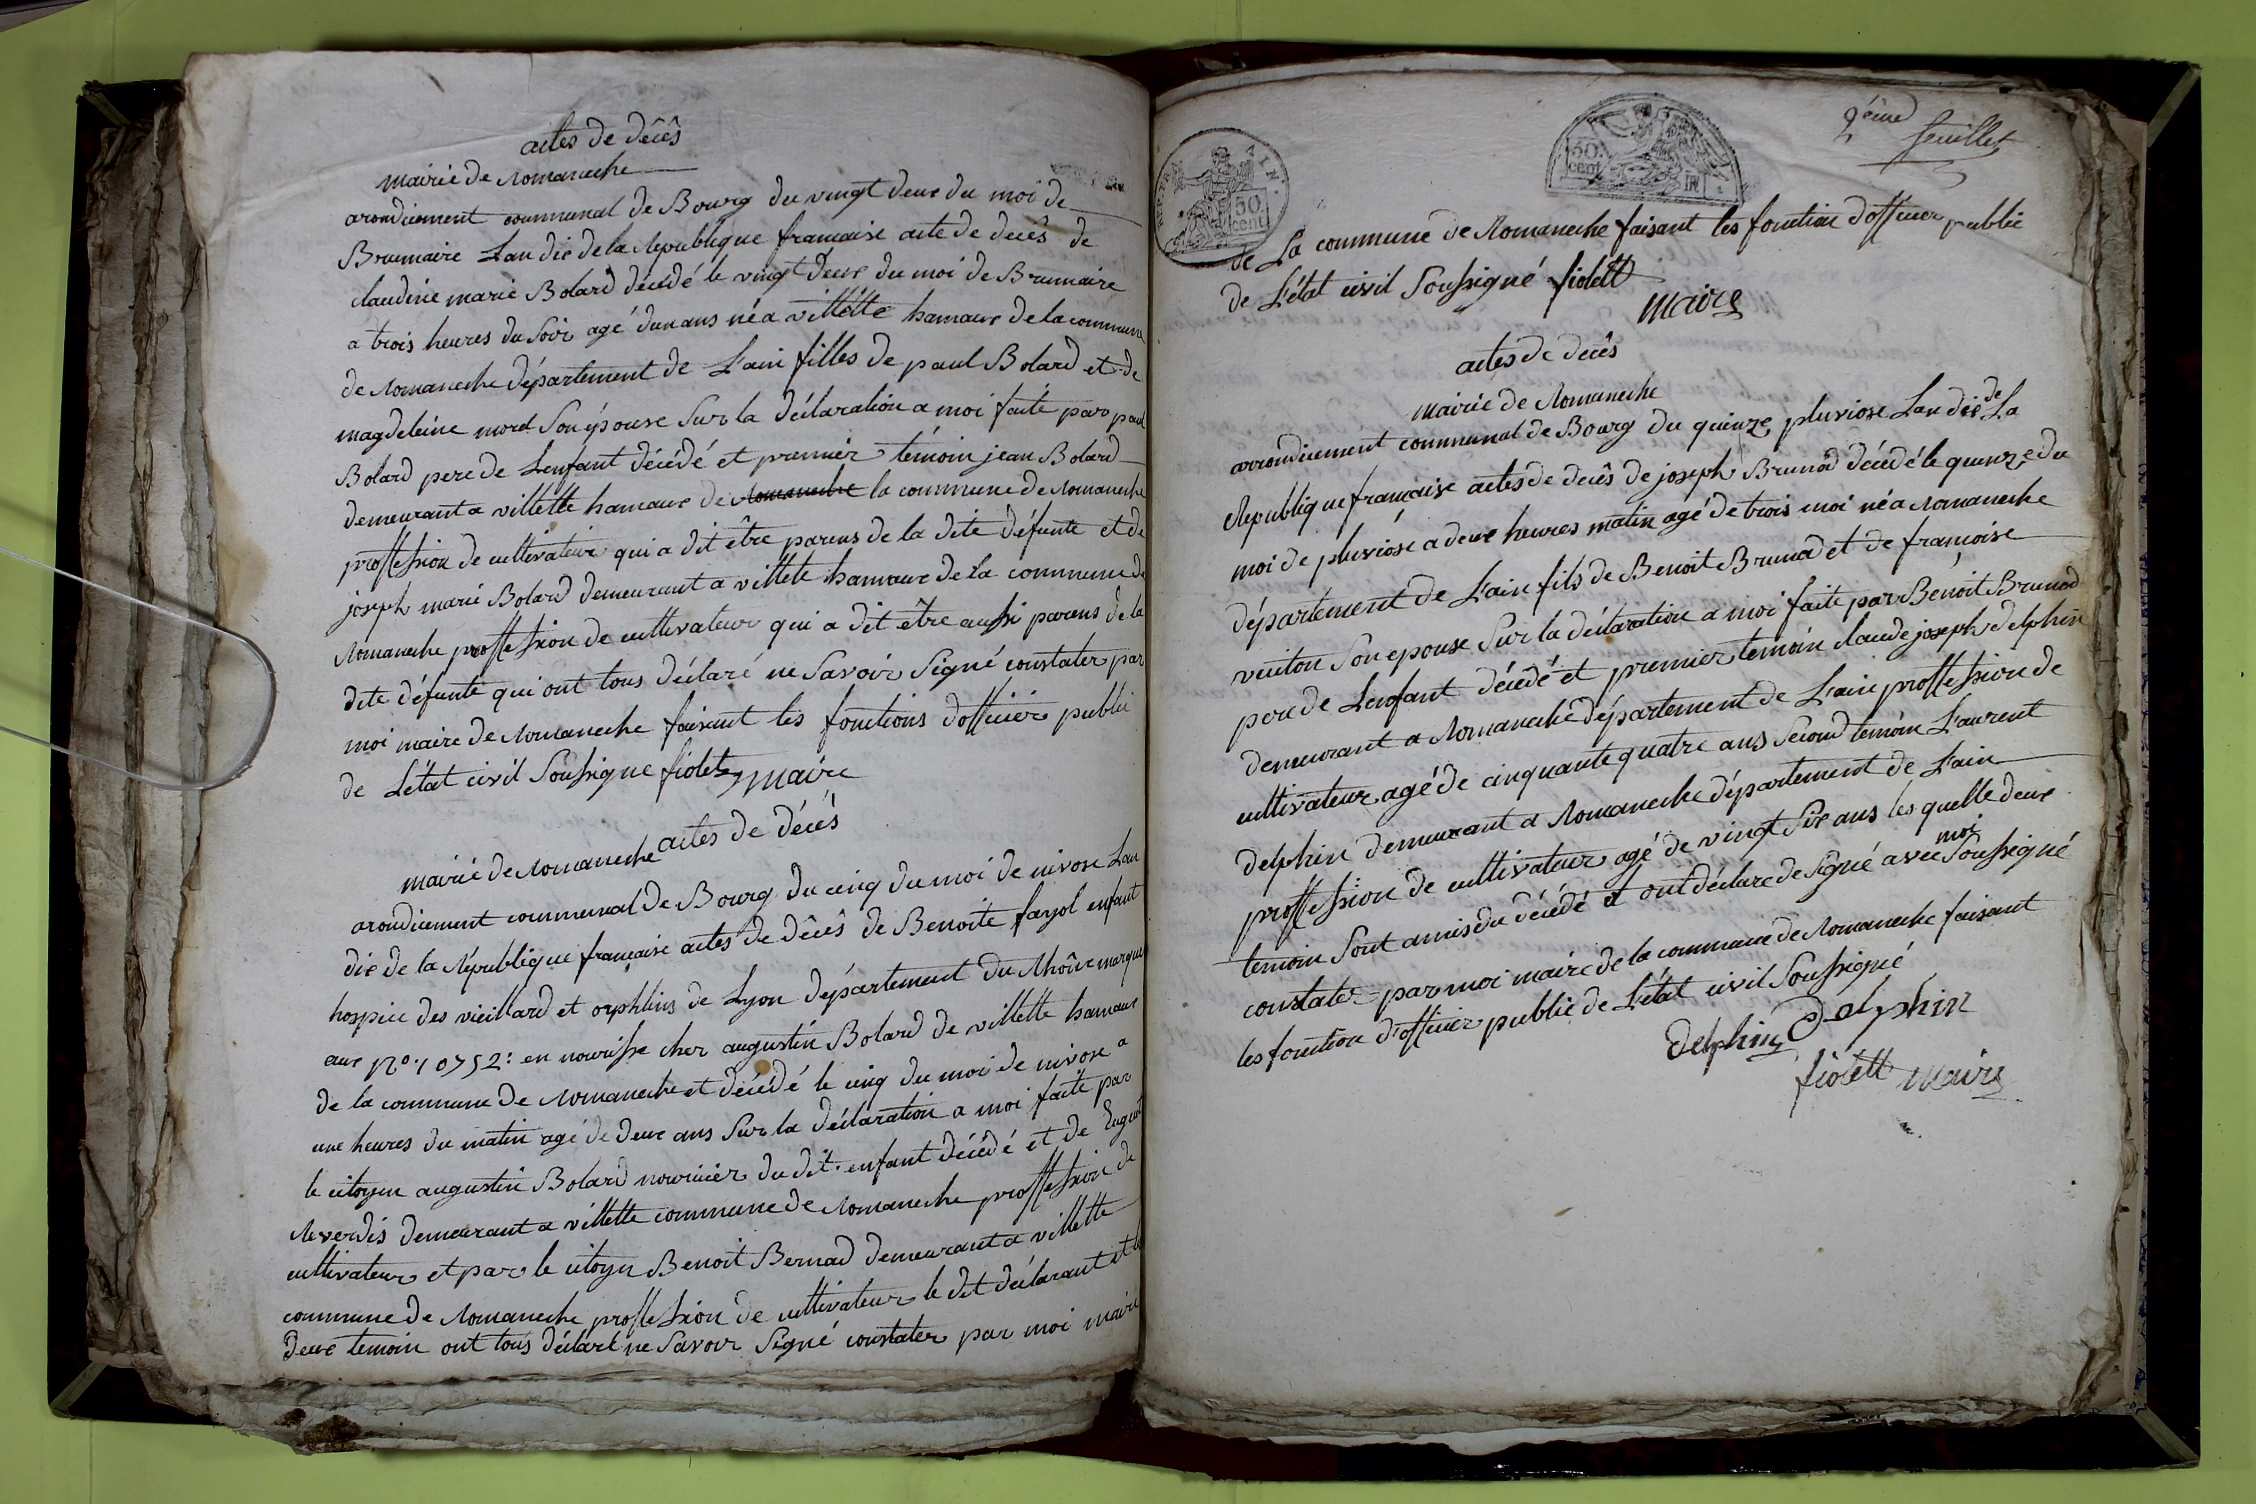 actes de décês
mairie de Romaneche
arondicement communal de Bourg du vingt deux du moi de
Brumaire Lan dix de la République francaise acte de decês de
claudine marie Bolard décédé le vingt deux du moi de Brumaire
a trois heures du Soir agé dun ans né a villette hamaux de la commune
de Romaneche département de L'ain filles de paul Bolard et de
magdeleine morel Son épouse Sur la déclaration a moi faite par paul
Bolard pere de Lenfant décédé et premier témoin jean Bolard
demeurant a villette hamaux de Romaneche la commune de Romaneche
proffession de cultivateur qui a dit être parens de la dite défunte et de
joseph marie Bolard demeurant a villete hamaux de la commune de
Romaneche proffession de cultivateur qui a dit être aussi parens de la
dite défunte qui ont tous déclaré ne Savoir Signé constater par
moi maire de Romaneche faisant les fonctions d'officier public
de L'état civil Soussigne fiolet maire
actes de décés
mairie de Romaneche
arondicement communal de Bourg du cinq du moi de nivose Lan
dix de la République francaise actes de décês de Benoite fayol enfant
hospice des vieillard et orphlins de Lyon département du Rhône marqué
aux No. 10752: en nourisse cher augustin Bolard de villette hamaux
de la commune de Romaneche et décédé le cinq du moi de nivose a
une heures du matin agé de deux ans Sur la déclaration a moi faite par
le citoyen augustin Bolard nouricier du dit enfant décédé et de
Reverdis demeurant a villette commune de Romaneche proffession de
cultivateur et par le citoyn Benoit Bernad demeurant a villette
commune de Romaneche proffession de cultivateur le dit déclarant et le
deux temoin ont tous déclaré ne Savoir Signé constater par moi maire
2ème
feuillet
50 cent
50. cent
de La commune de Romaneche faisant les fonction dofficier public
de L'état civil Soussigné fiolett
maire
actes de decês
mairie de Romaneche
arrondicement communal de Bourg du quinze pluviose Lan dix de La
République francaise actes de decês de joseph Brunod décédé le quinze du
moi de pluviose a deux heures matin agé de trois moi né a Romaneche
département de L'ain fils de Benoit Brunod et de francoise
vuiton Son epouse Sur la déclaration a moi faite par Benoit Brunod
pere de Lenfant décédé et premier temoin claude joseph delphin
demeurant a Romaneche département de L'ain proffession de
cultivateur agé de cinquante quatre ans Second temoin Laurent
delphin demeurant a Romaneche département de L'ain
proffession de cultivateur agé de vingt Six ans les quelle deux
temoin Sont amis du décédé et ont déclare de Signé avec moi Soussigné
constater par moi maire de la commune de Romaneche faisant
les fonction d'officier public de L'état civil Soussigné
delphin Delphin
fiolett maire